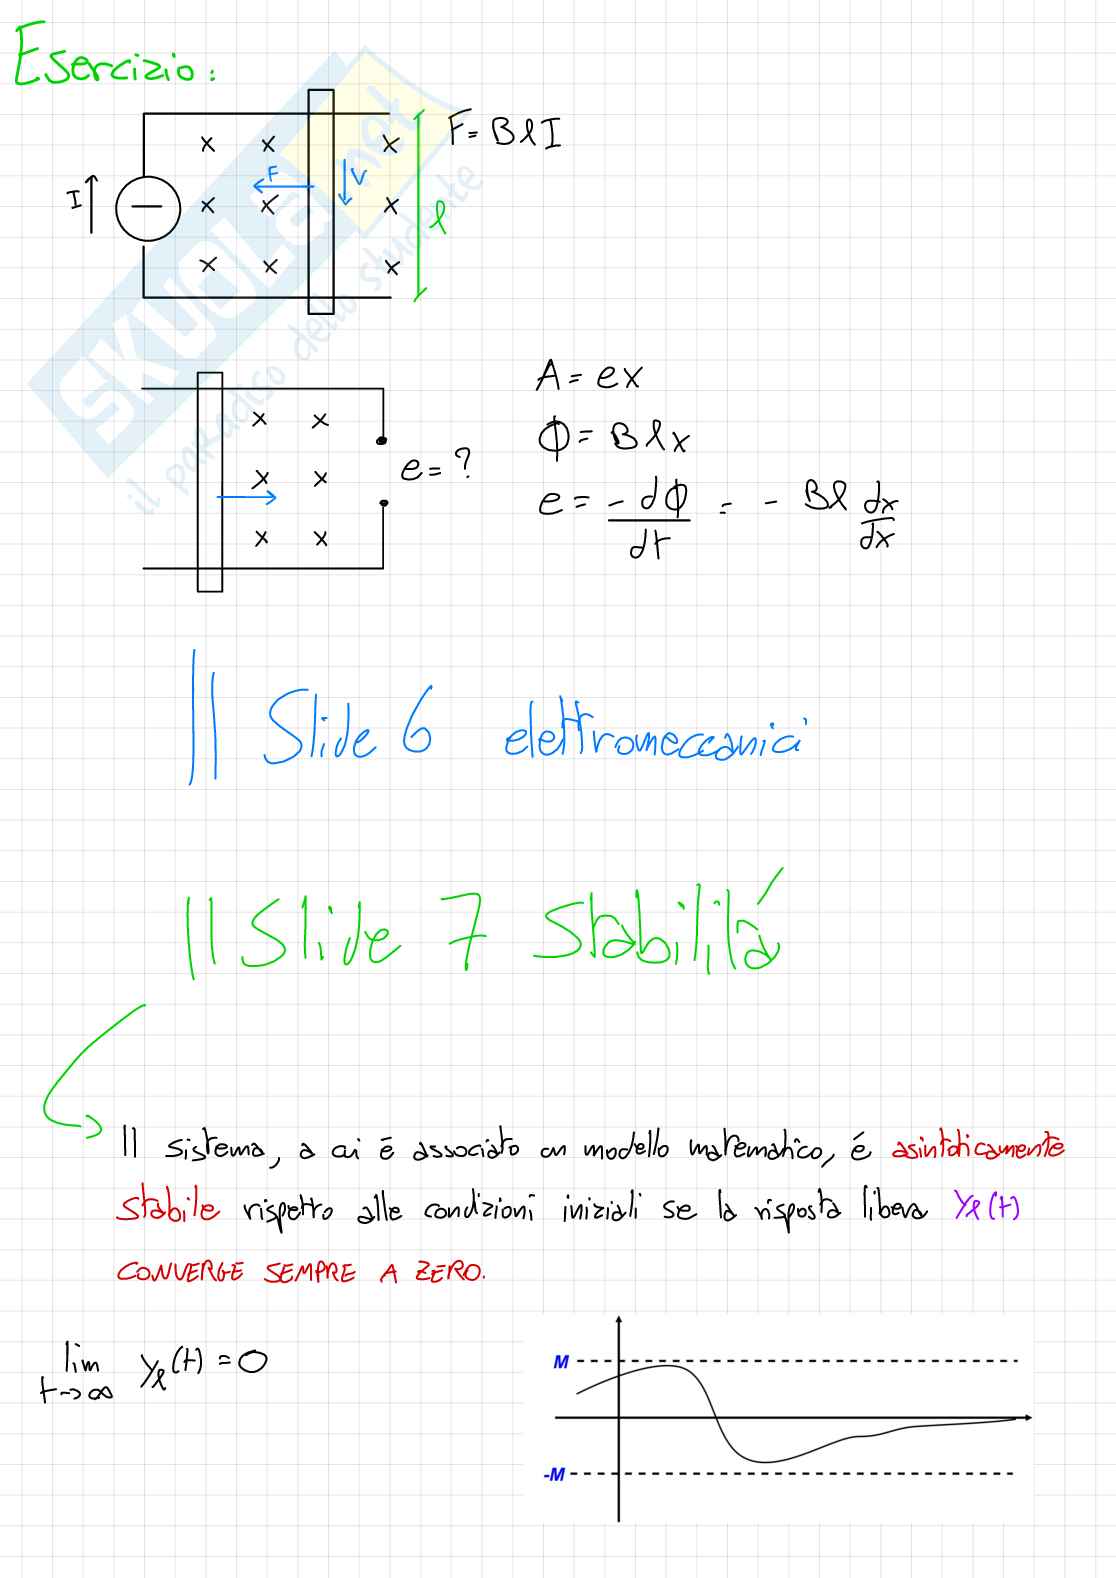 Esercizio:
F = B l I
I
F
V
l
A = ex
Φ = B l x
e = ?
e = -dΦ/dt = - Bl dx/dx
|| Slide 6 elettromeccanici
|| Slide 7 Stabilitá
Il sistema, a cui é associato un modello matematico, é asintoticamente
stabile rispetto alle condizioni iniziali se la risposta libera yl(t)
CONVERGE SEMPRE A ZERO.
lim t→∞ yl(t) = 0
M
-M
SKUOLA.net
il paradiso dello studente